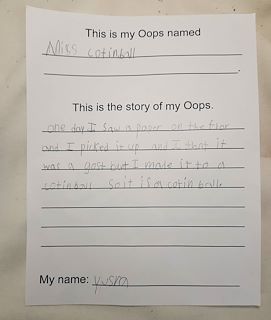 This is my Oops named
Miss cotinball
This is the story of my Oops.
one day I saw a paper on the flor
and I picked it up and I that it
was a gost but I made it to a
cotinball So it is a cotin ball.
My name: